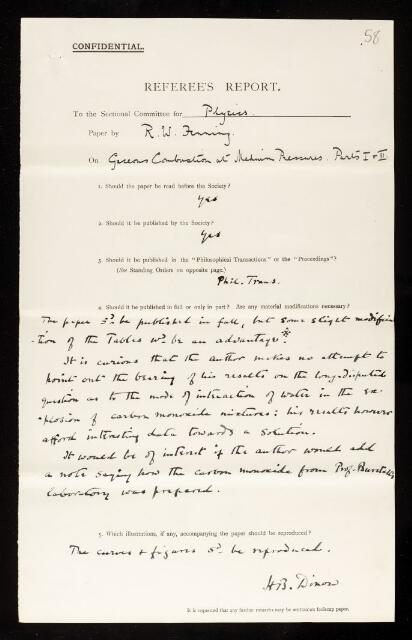 58
CONFIDENTIAL.
REFEREE'S REPORT.
To the Sectional Committee for Physics.
Paper by R. W. Fenning.
On Gaseous Combustion at Medium Pressures. Parts I & II
1. Should the paper be read before the Society?
yes
2. Should it be published by the Society?
Yes
3. Should it be published in the "Philosophical Transactions" or the "Proceedings"?
(See Standing Orders on opposite page.)
Phil. Trans.
4. Should it be published in full or only in part? Are any material modifications necessary?
The paper sd. be published in full, but some slight modifica-
-tion of the Tables wd. be an advantage.*
It is curious that the author makes no attempt to
point out the bearing of his results on the long-disputed
question as to the mode of interaction of water in the ex-
-plosion of carbon monoxide mixtures: his results however
afford interesting data towards a solution.
It would be of interest if the author would add
a note saying how the carbon monoxide from Prof. Burstall's
laboratory was prepared.
5. Which illustrations, if any, accompanying the paper should be reproduced?
The curves & figures sd. be reproduced.
H.B. Dixon
It is requested that any further remarks may be written on foolscap paper.